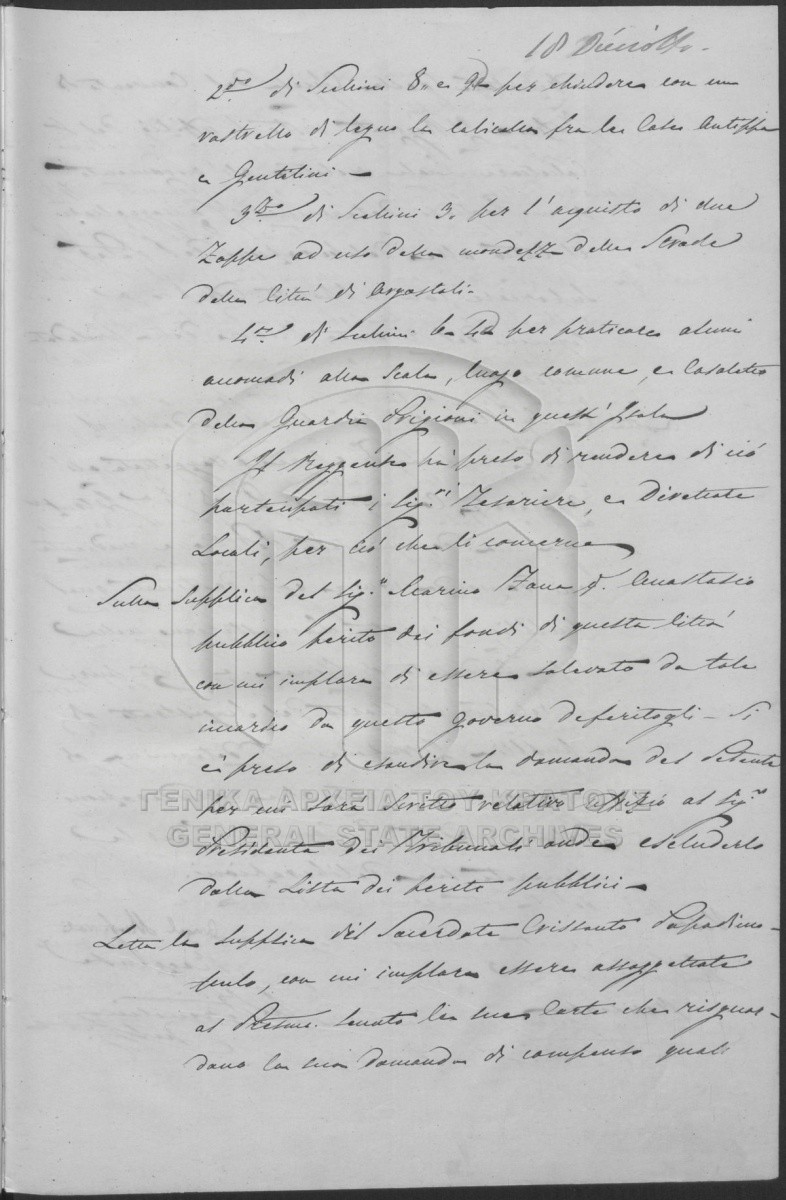 18 Dieciotto.
2do di Scelini 8. e 9d per chiudere con un
rastrello di legno la calicella fra le Case Antippa
e Gentilini –
3zo di Scelini 3. per l'acquisto di due
Zappe ad uso della mondezza delle Strade
della Città di Argostoli.
4to di Scelini 6 4d per praticare alcuni
accomodi alla Scala, luogo comune, e Casaletto
della Guardia Prigioni in quest' Isola
Il Reggente ha preso di rendere di ciò
partecipati i Sigri Tesoriere, e Direttore
Locali, per ciò che li concerne
Sulla Supplica del Sigr Marino Zana q. Anastasio
pubblico perito dei fondi di questa Città
con cui implora di essere solevato da tale
incarico da questo Governo deferitogli – Si
è preso di esaudire la domanda del Petente
per cui sarà diretto relativo Uffizio al Sigr
Presidente dei Tribunali onde escluderlo
dalla Lista dei periti pubblici –
Letta la Supplica del Sacerdote Crissanto Papadimo-
pulo, con cui implora essere assoggettate
al Prestmo Senato le sue Carte che risguar-
dano la sua domanda di compenso quale
ΓΕΝΙΚΑ ΑΡΧΕΙΑ ΤΟΥ ΚΡΑΤΟΥΣ
GENERAL STATE ARCHIVES